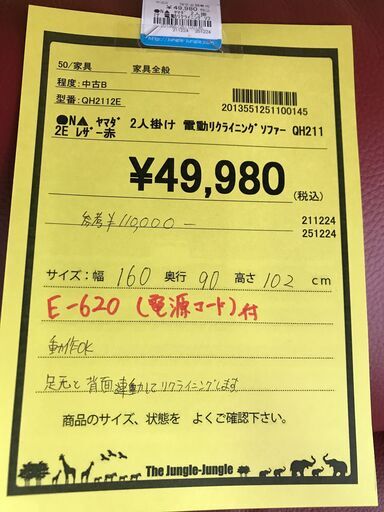 ¥49,980
●N▲ ヤマダ 2人掛
電動リクライニングソファ
211224 251224
50/家具 家具全般
程度:中古B
型番:QH2112E
2013551251100145
●N▲ ヤマダ 2人掛け 電動リクライニングソファー QH211
2E レザー赤
¥49,980
(税込)
参考¥110,000-
211224
251224
サイズ:幅 160 奥行 90 高さ 102 cm
E-620 (電源コード)付
動作OK
足元と背面連動してリクライニングします
商品のサイズ、状態を よくご確認下さい。
The Jungle-Jungle